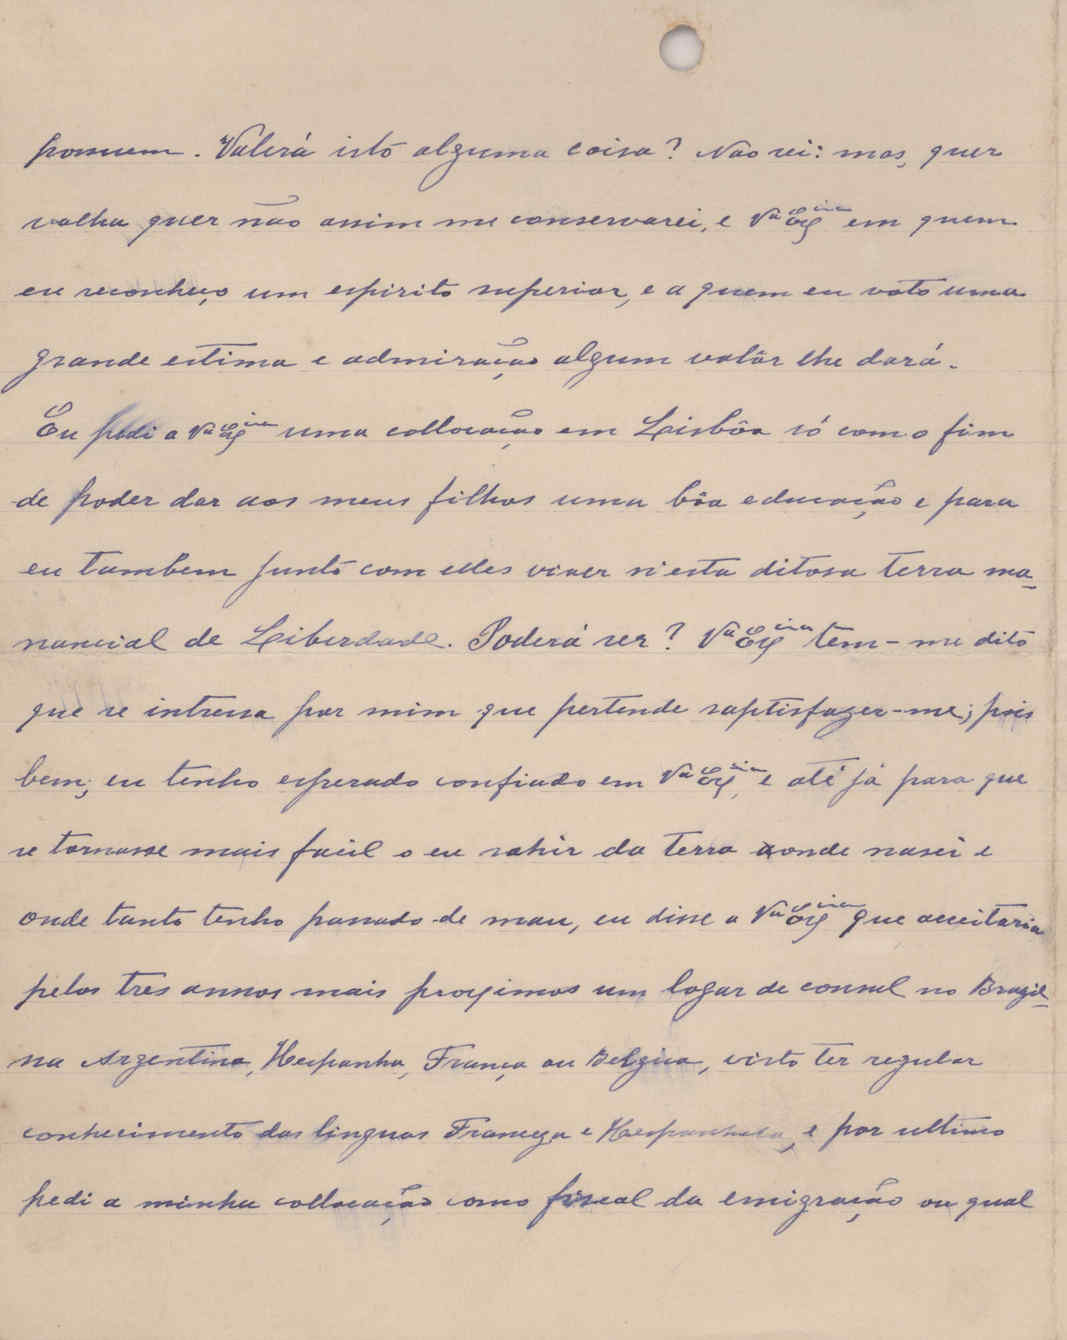 possuem. Valerá isto alguma coisa? Não sei: mas, quer
valha quer não assim me conservarei, e Vª Exᶜⁱᵃ em quem
eu reconheço um espirito superior, e a quem eu voto uma
grande estima e admiração algum valôr lhe dará.
Eu pedi a Vª Exᶜⁱᵃ uma collocação em Lisbôa só com o fim
de poder dar aos meus filhos uma bôa educação e para
eu tambem junto com elles viver n'esta ditosa terra ma-
nancial de Liberdade. Poderá ser? Vª Exᶜⁱᵃ tem-me dito
que se intressa por mim que pertende saptisfazer-me; pois
bem, eu tenho esperado confiado em Vª Exᶜⁱᵃ, e até já para que
se tornasse mais facil o eu sahir da terra aonde nasci e
onde tanto tenho passado de mau, eu disse a Vª Exᶜⁱᵃ que acceitaria
pelos tres annos mais proximos um logar de consul no Brazil-
na Argentina, Hespanha, França ou Belgica, visto ter regular
conhecimento das linguas Franceza e Hespanhola, e por ultimo
pedi a minha collocação como fiscal da emigração ou qual